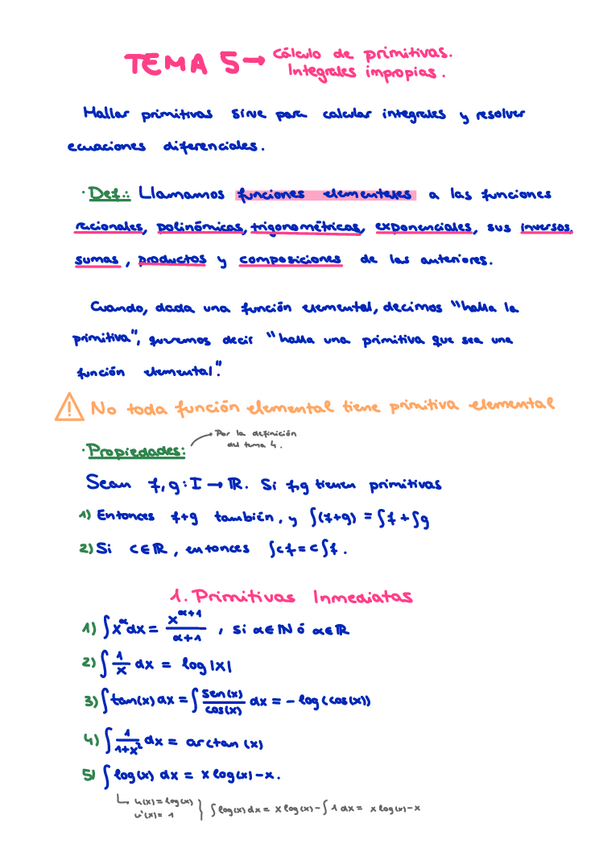 TEMA 5 → Cálculo de primitivas.
Integrales impropias.
Hallar primitivas sirve para calcular integrales y resolver
ecuaciones diferenciales.
· Def.: Llamamos funciones elementales a las funciones
racionales, polinómicas, trigonométricas, exponenciales, sus inversas,
sumas, productos y composiciones de las anteriores.
Cuando, dada una función elemental, decimos "halla la
primitiva", queremos decir "halla una primitiva que sea una
función elemental".
⚠ No toda función elemental tiene primitiva elemental
Por la definición
del tema 4.
· Propiedades:
Sean f, g : I → ℝ. Si f,g tienen primitivas
1) Entonces f+g también, y ∫(f+g) = ∫f + ∫g
2) Si c∈ℝ, entonces ∫cf = c∫f.
1. Primitivas Inmediatas
1) ∫x^α dx = x^(α+1)/(α+1) , si α∈ℕ ó α∈ℝ
2) ∫ 1/x dx = log|x|
3) ∫tan(x) dx = ∫ sen(x)/cos(x) dx = - log(cos(x))
4) ∫ 1/(1+x²) dx = arctan(x)
5) ∫log(x) dx = x log(x) - x.
u(x) = log(x)
v'(x) = 1 } ∫log(x) dx = x log(x) - ∫1 dx = x log(x) - x